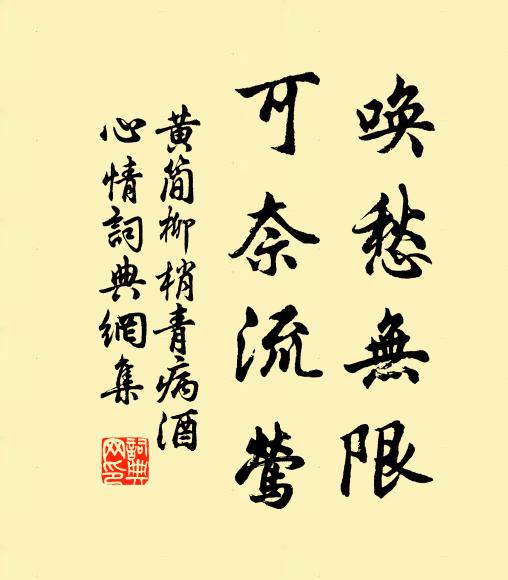 喚愁無限
可奈流鶯
黄簡柳梢青病酒
心情詞典網集
詞典網印